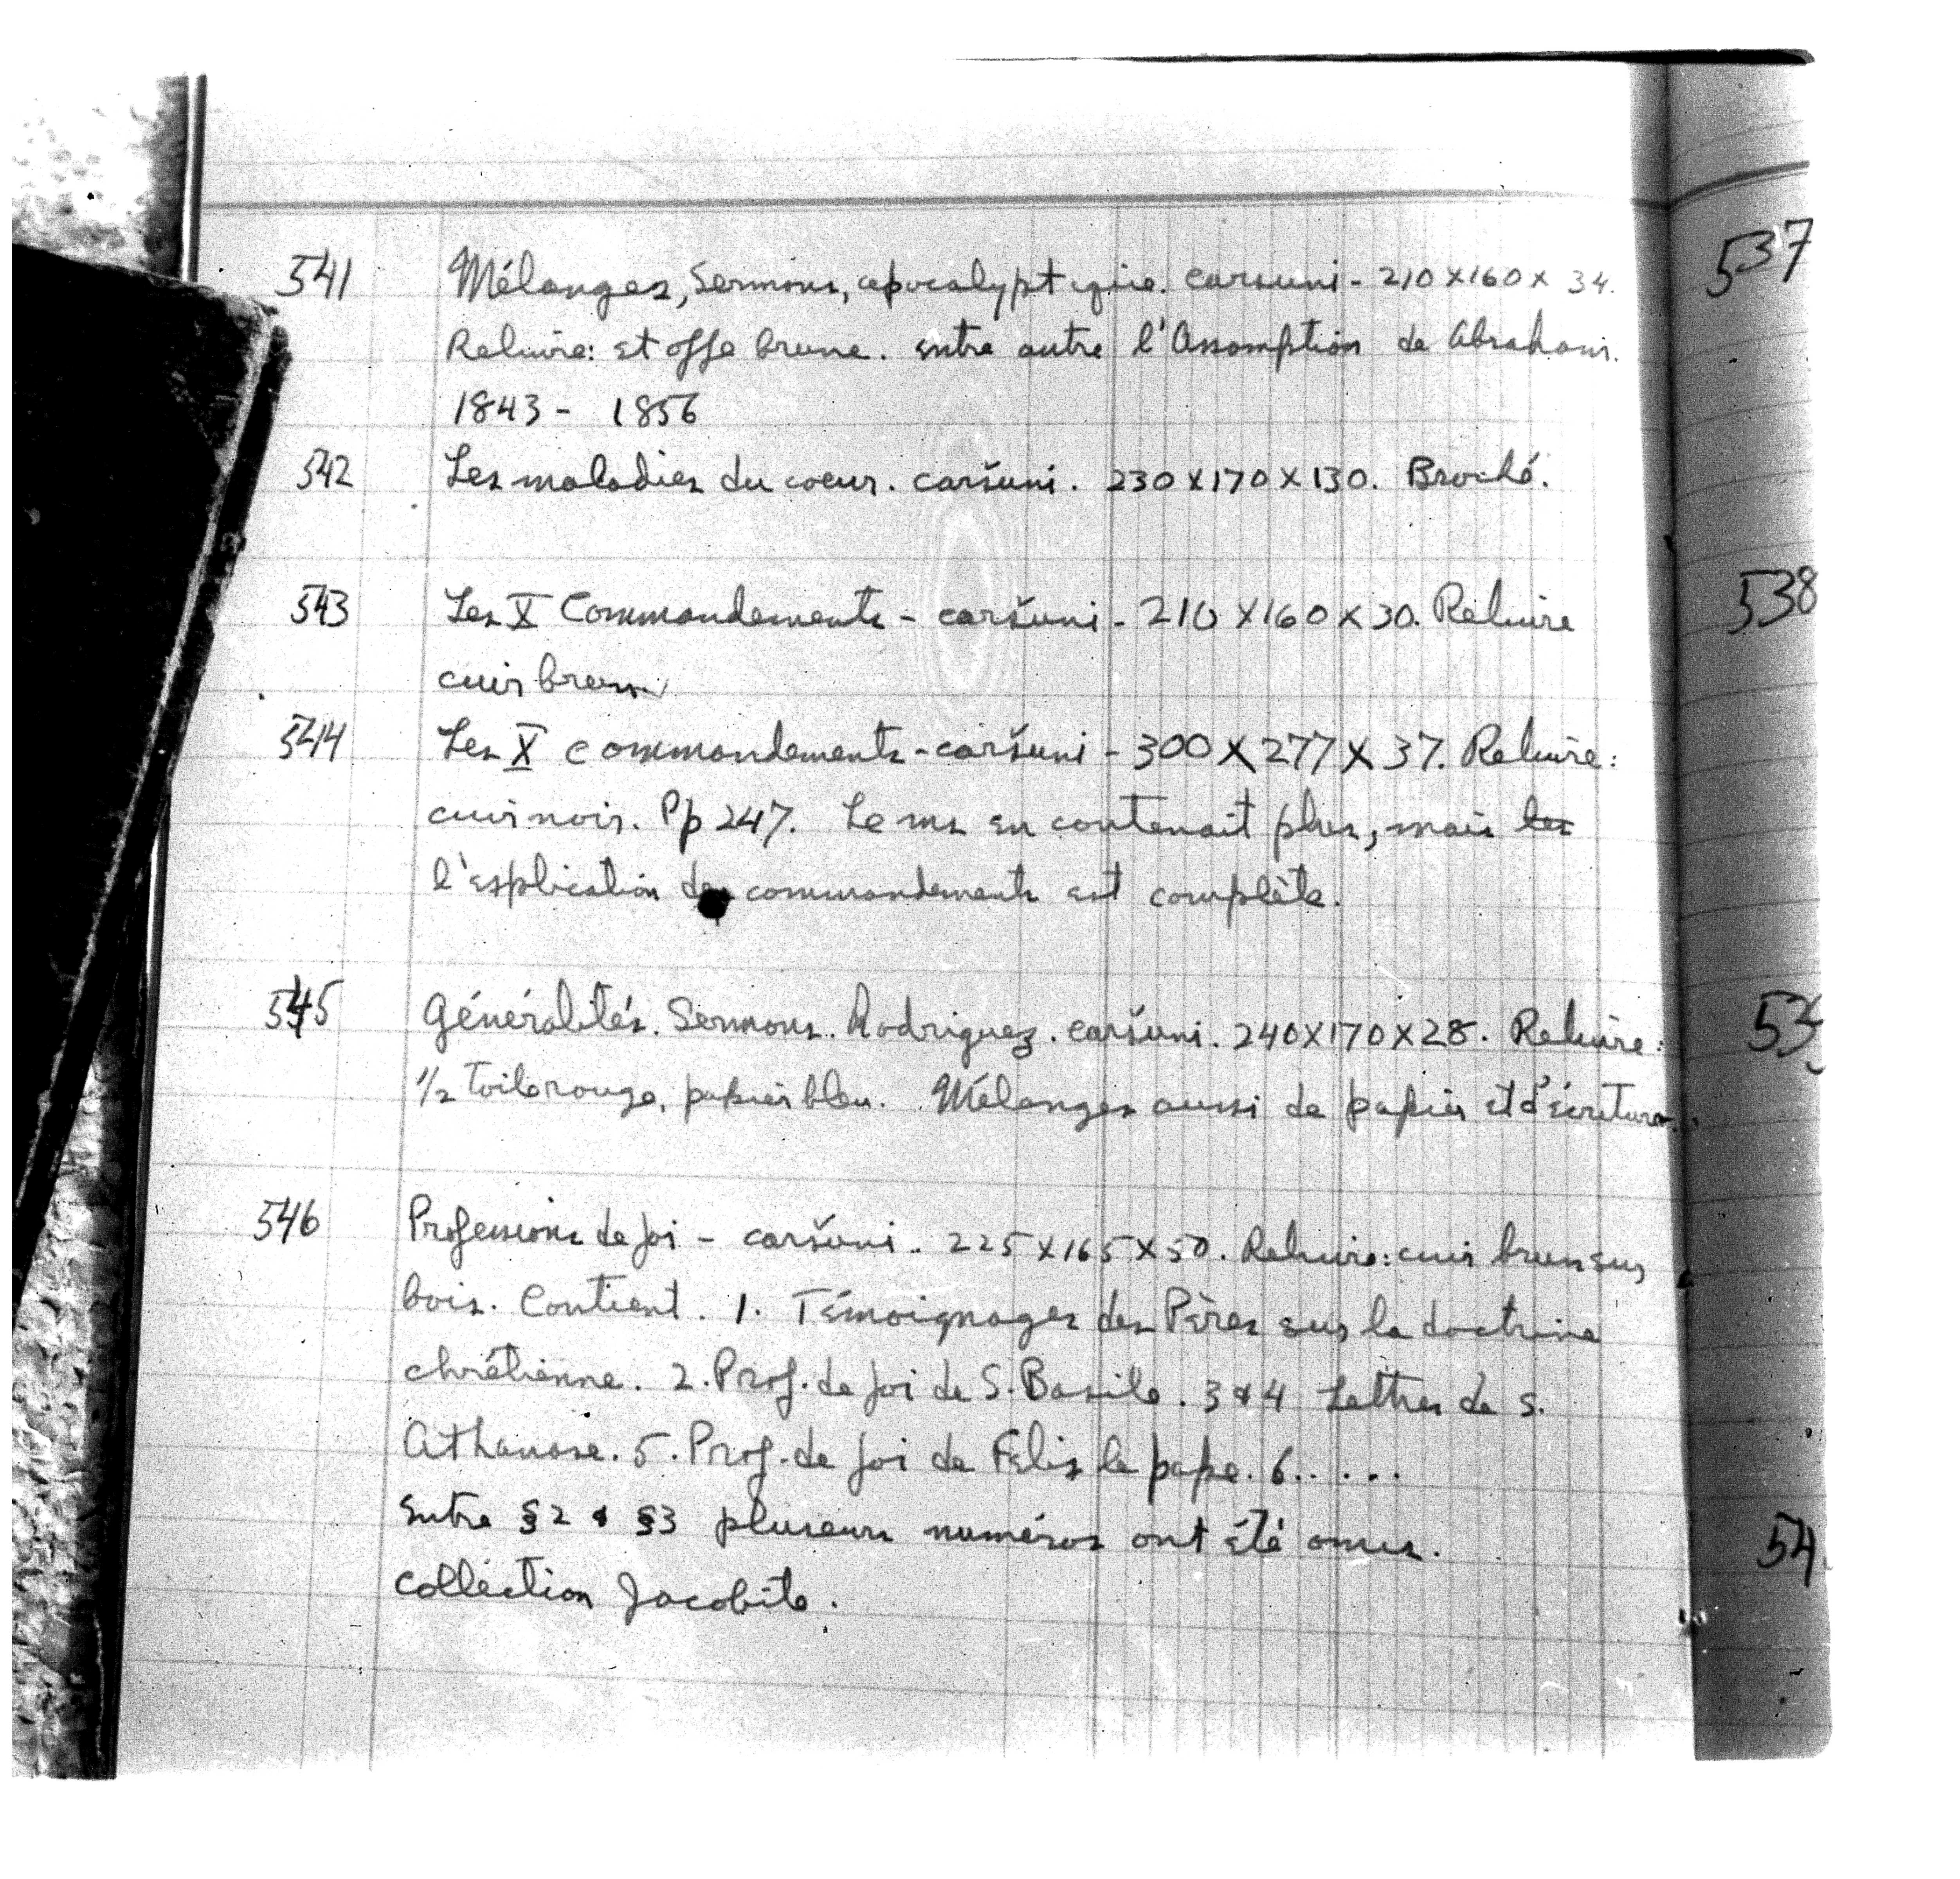 541 Mélanges, Sermons, apocalyptique. carsuni - 210 x 160 x 34.
Reliure: etoffe brune. entre autre l'Assomption de Abraham.
1843 - 1856
542 Les maladies du coeur. caršuni. 230 x 170 x 130. Broché.
543 Les X Commandements - caršuni - 210 x 160 x 30. Reliure
cuir brun
544 Les X commandements - caršuni - 300 x 277 x 37. Reliure:
cuir noir. Pp 247. Le ms en contenait plus, mais les
l'explication des commandements est complète.
545 Généralités. Sermons. Rodriguez. caršuni. 240 x 170 x 28. Reliure:
1/2 toile rouge, papier bleu. Mélanges aussi de papier et d'écriture.
546 Professions de foi - caršuni. 225 x 165 x 50. Reliure: cuir brun sur
bois. Contient. 1. Témoignages des Pères sur la doctrine
chrétienne. 2. Prof. de foi de S. Basile. 3 & 4 Lettres de S.
Athanase. 5. Prof. de foi de Felix le pape. 6.....
Entre §2 & §3 plusieurs numéros ont été omis.
Collection Jacobite.
537
538
53
54